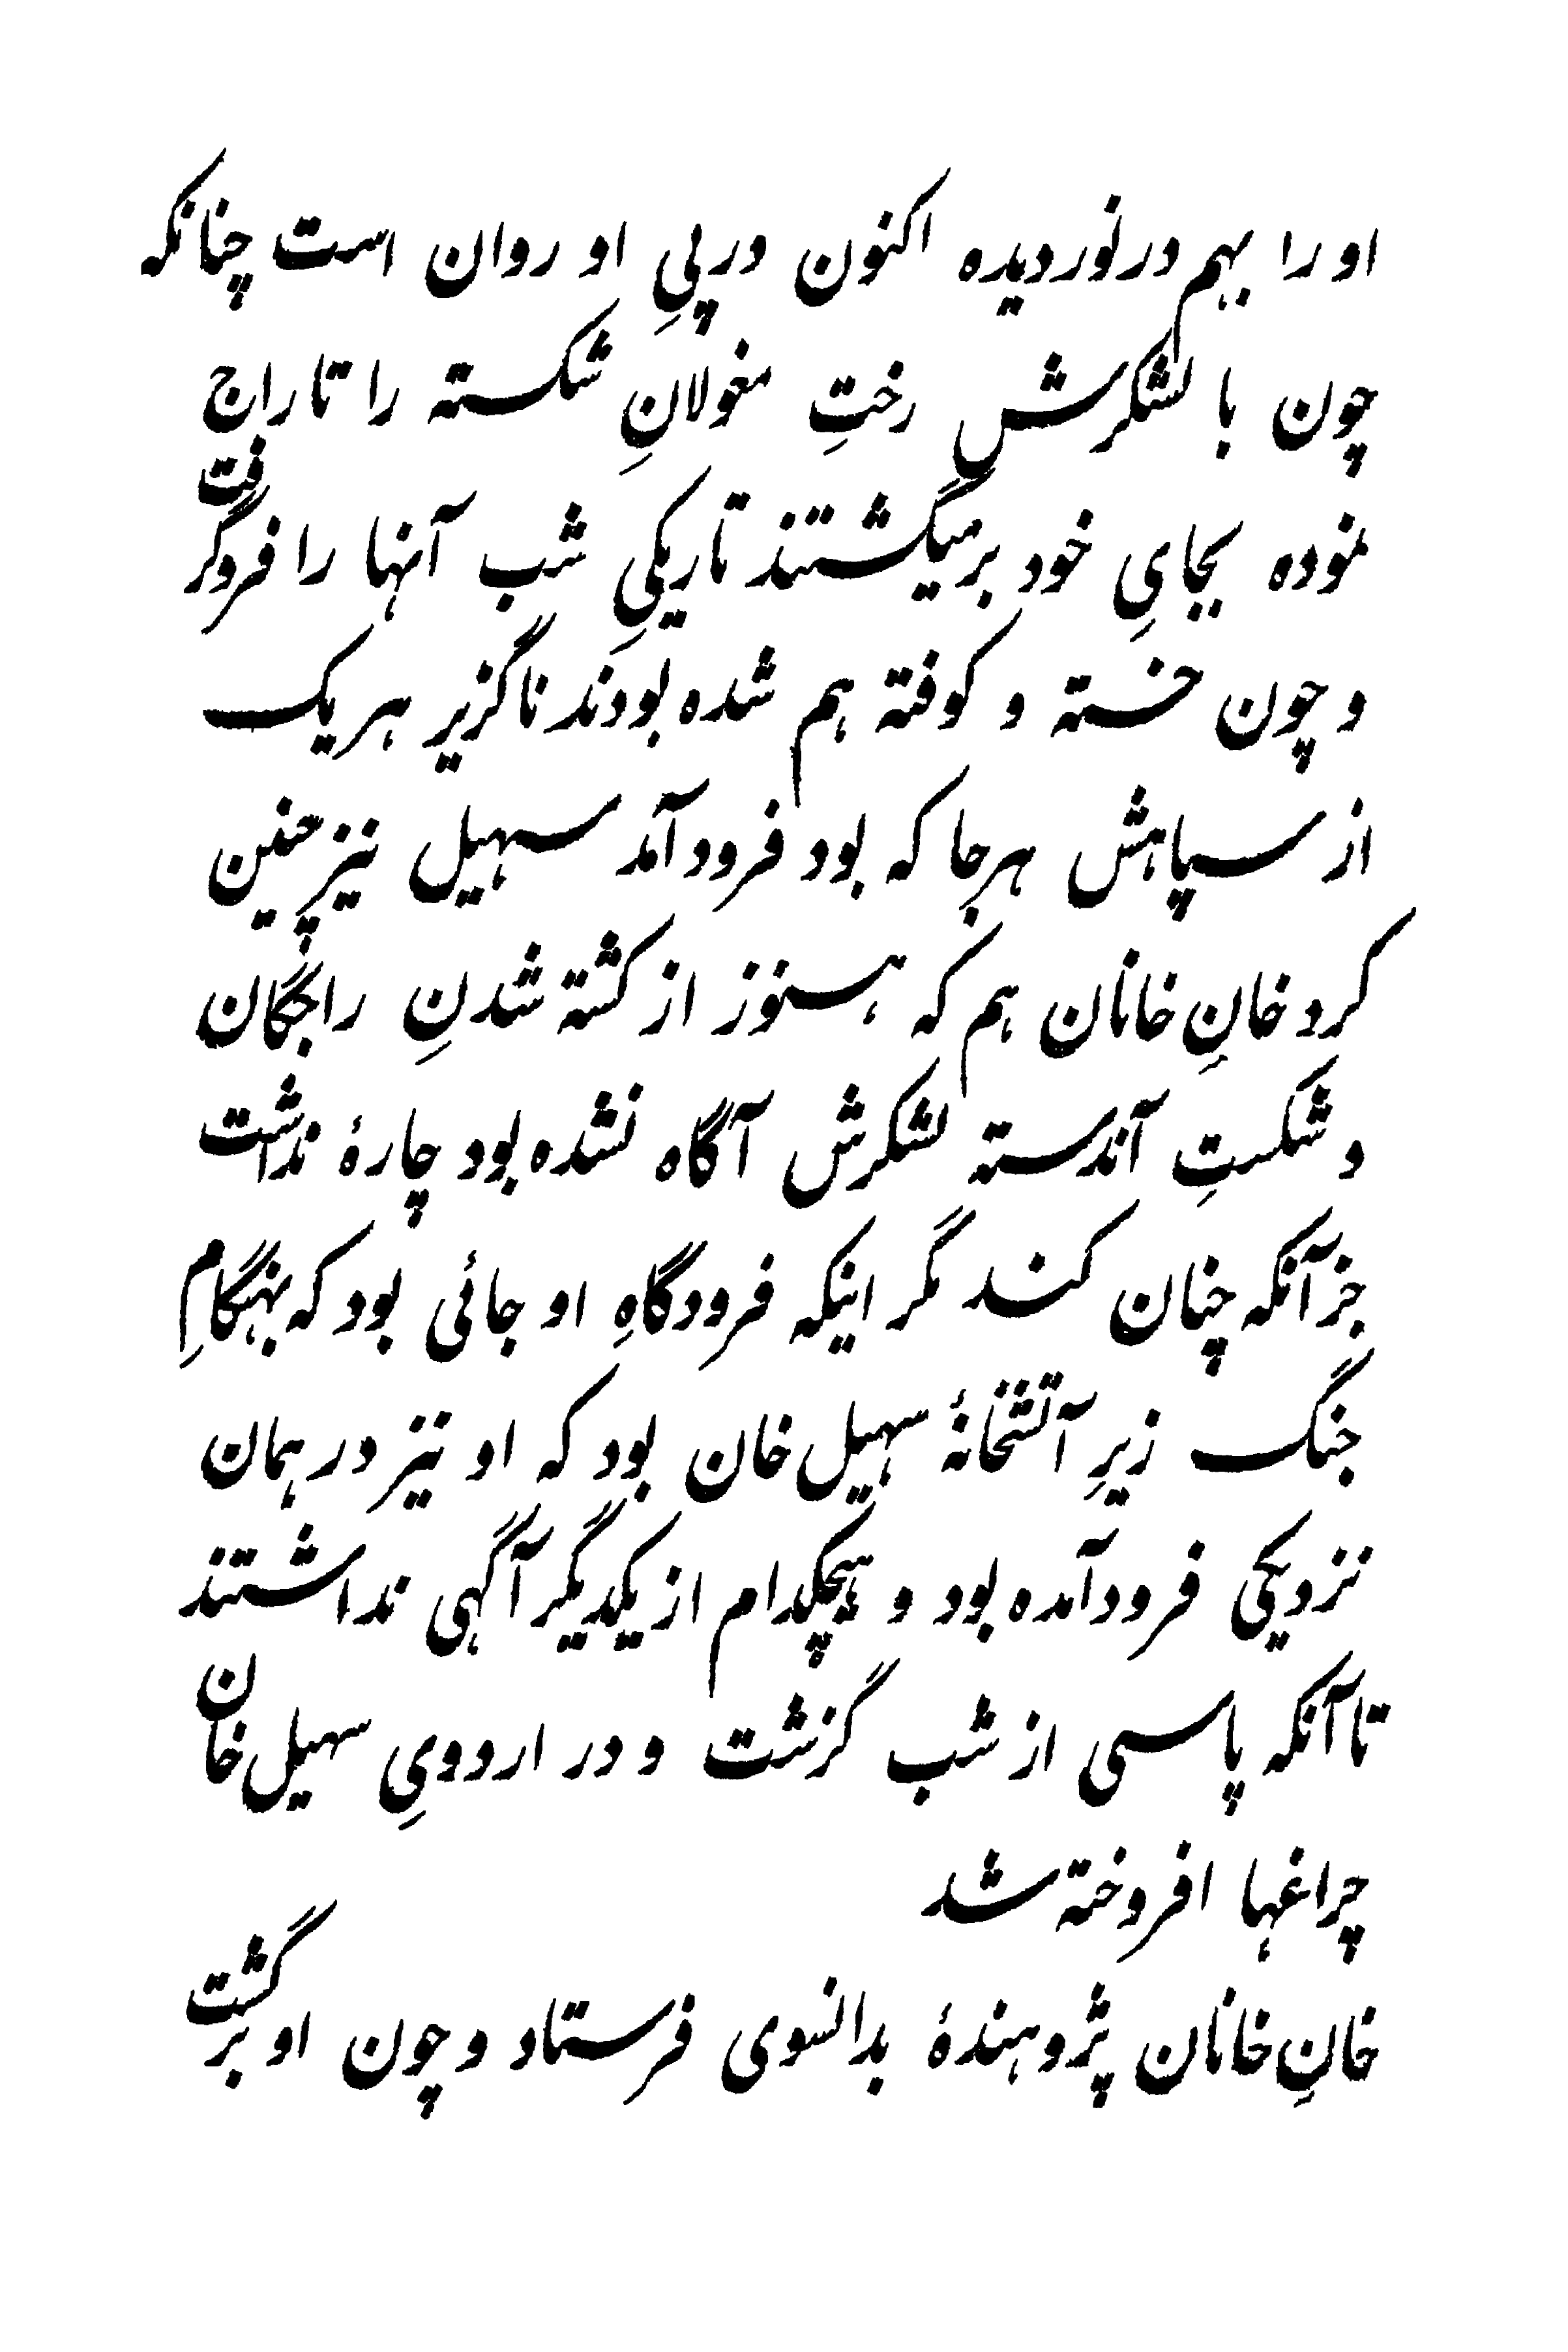 او را بهم درنوردیده اکنون در پیِ او روان است چنانکه
چون با لشکرش رختِ مغولانِ شکسته را تاراج
نموده بجایِ خود برمیگشتند تاریکیِ شب آنها را فروگرفت
و چون خسته و کوفته هم شده بودند ناگزیر هر یک
از سپاهش هرجا که بود فرود آمد سهیل نیز چنین
کرد خانِ خانان هم که هنوز از کشته شدنِ راجگان
و شکستِ آندسته لشکرش آگاه نشده بود چارهٔ نداشت
جز آنکه چنان کند مگر اینکه فرودگاهِ او جائی بود که بهنگامِ
جنگ زیرِ آتشخانهٔ سهیل خان بود که او نیز در همان
نزدیکی فرود آمده بود و هیچکدام از یکدیگر آگهی نداشتند
تا آنکه پاسی از شب گزشت و در اردویِ سهیل خان
چراغها افروخته شد
خانِ خانان پژوهندهٔ بدانسوی فرستاد و چون او برگشت